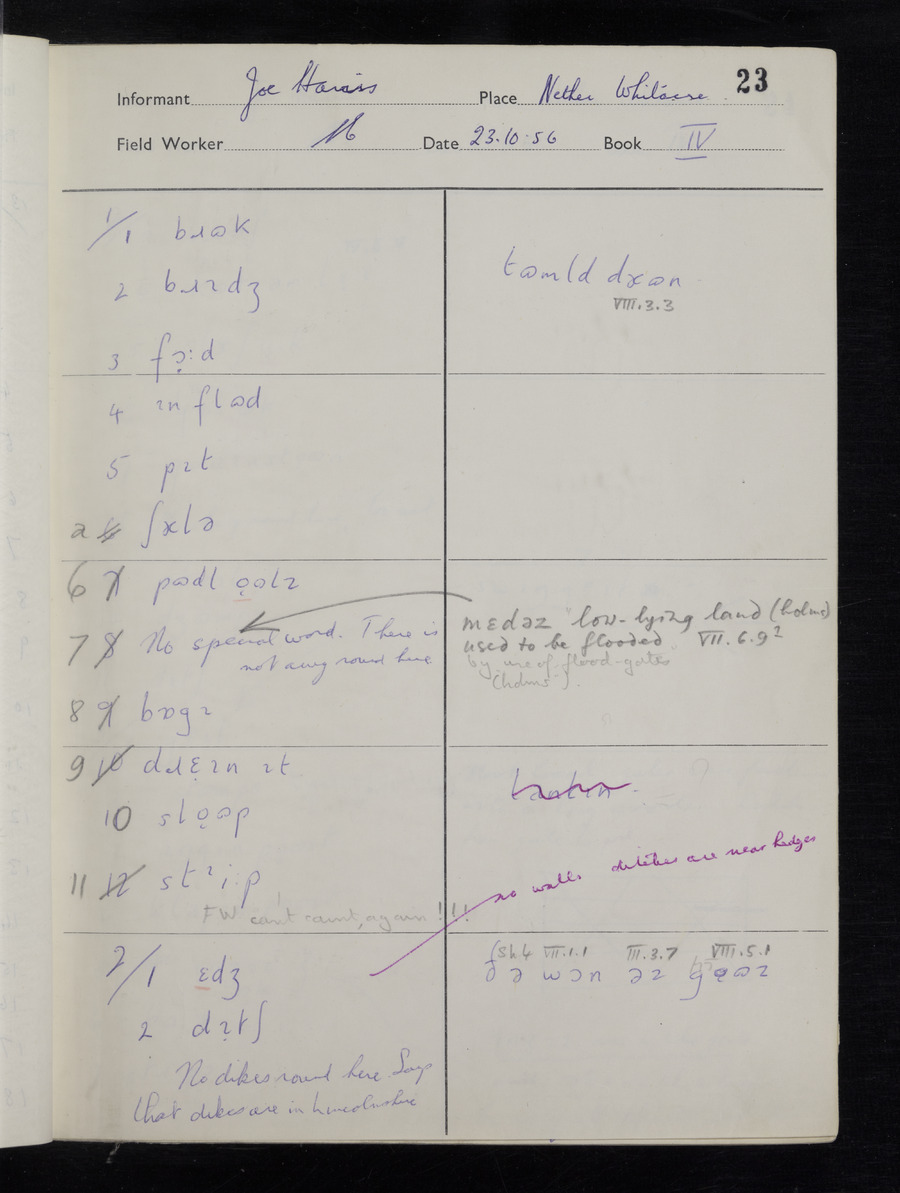 23
Informant Joe Harris Place Nether Whitacre
Field Worker Date 23.10.56 Book IV
1/1 bɹɷk
2 bɹɪdʒ
3 fɔ̣:d
4 ɪn flɷd
5 pɪt
a ʃælə
6 pɷdl ọɷlz
7 No special word. There is
not any round here
8 bɒgɪ
9 dɹɛ̣ɪn ɪt
10 slọɷp
11 stˡi:p
FW can't count, again !!!
2/1 ɛdʒ
2 dɪ̣tʃ
No dikes round here. Says
that dikes are in Lincolnshire
tɷmld dæɷn
VIII.3.3
mɛdəz "low-lying land (holms)
used to be flooded" VII.6.9²
by use of flood-gates
(holms").
no walls ditches are near hedges
Sh.4 VII.1.1 III.3.7 VIII.5.1
ðə wɔn əz gọɷz